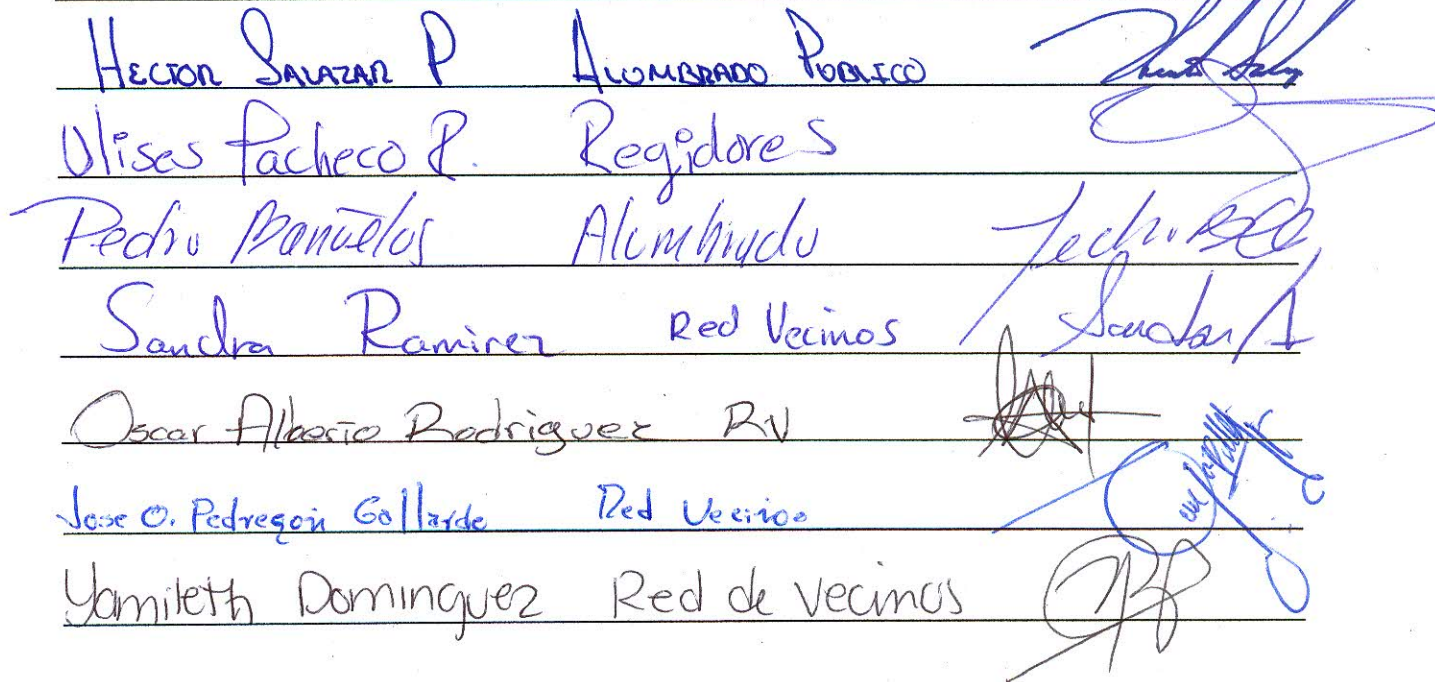 HECTOR SALAZAR P ALUMBRADO PUBLICO
Ulises Pacheco R. Regidores
Pedro Bañuelos Alumbrado
Sandra Ramirez Red Vecinos Sandra
Oscar Alberto Rodriguez RV
Jose O. Pedregon Gallardo Red Vecinos
Yamileth Dominguez Red de Vecinos